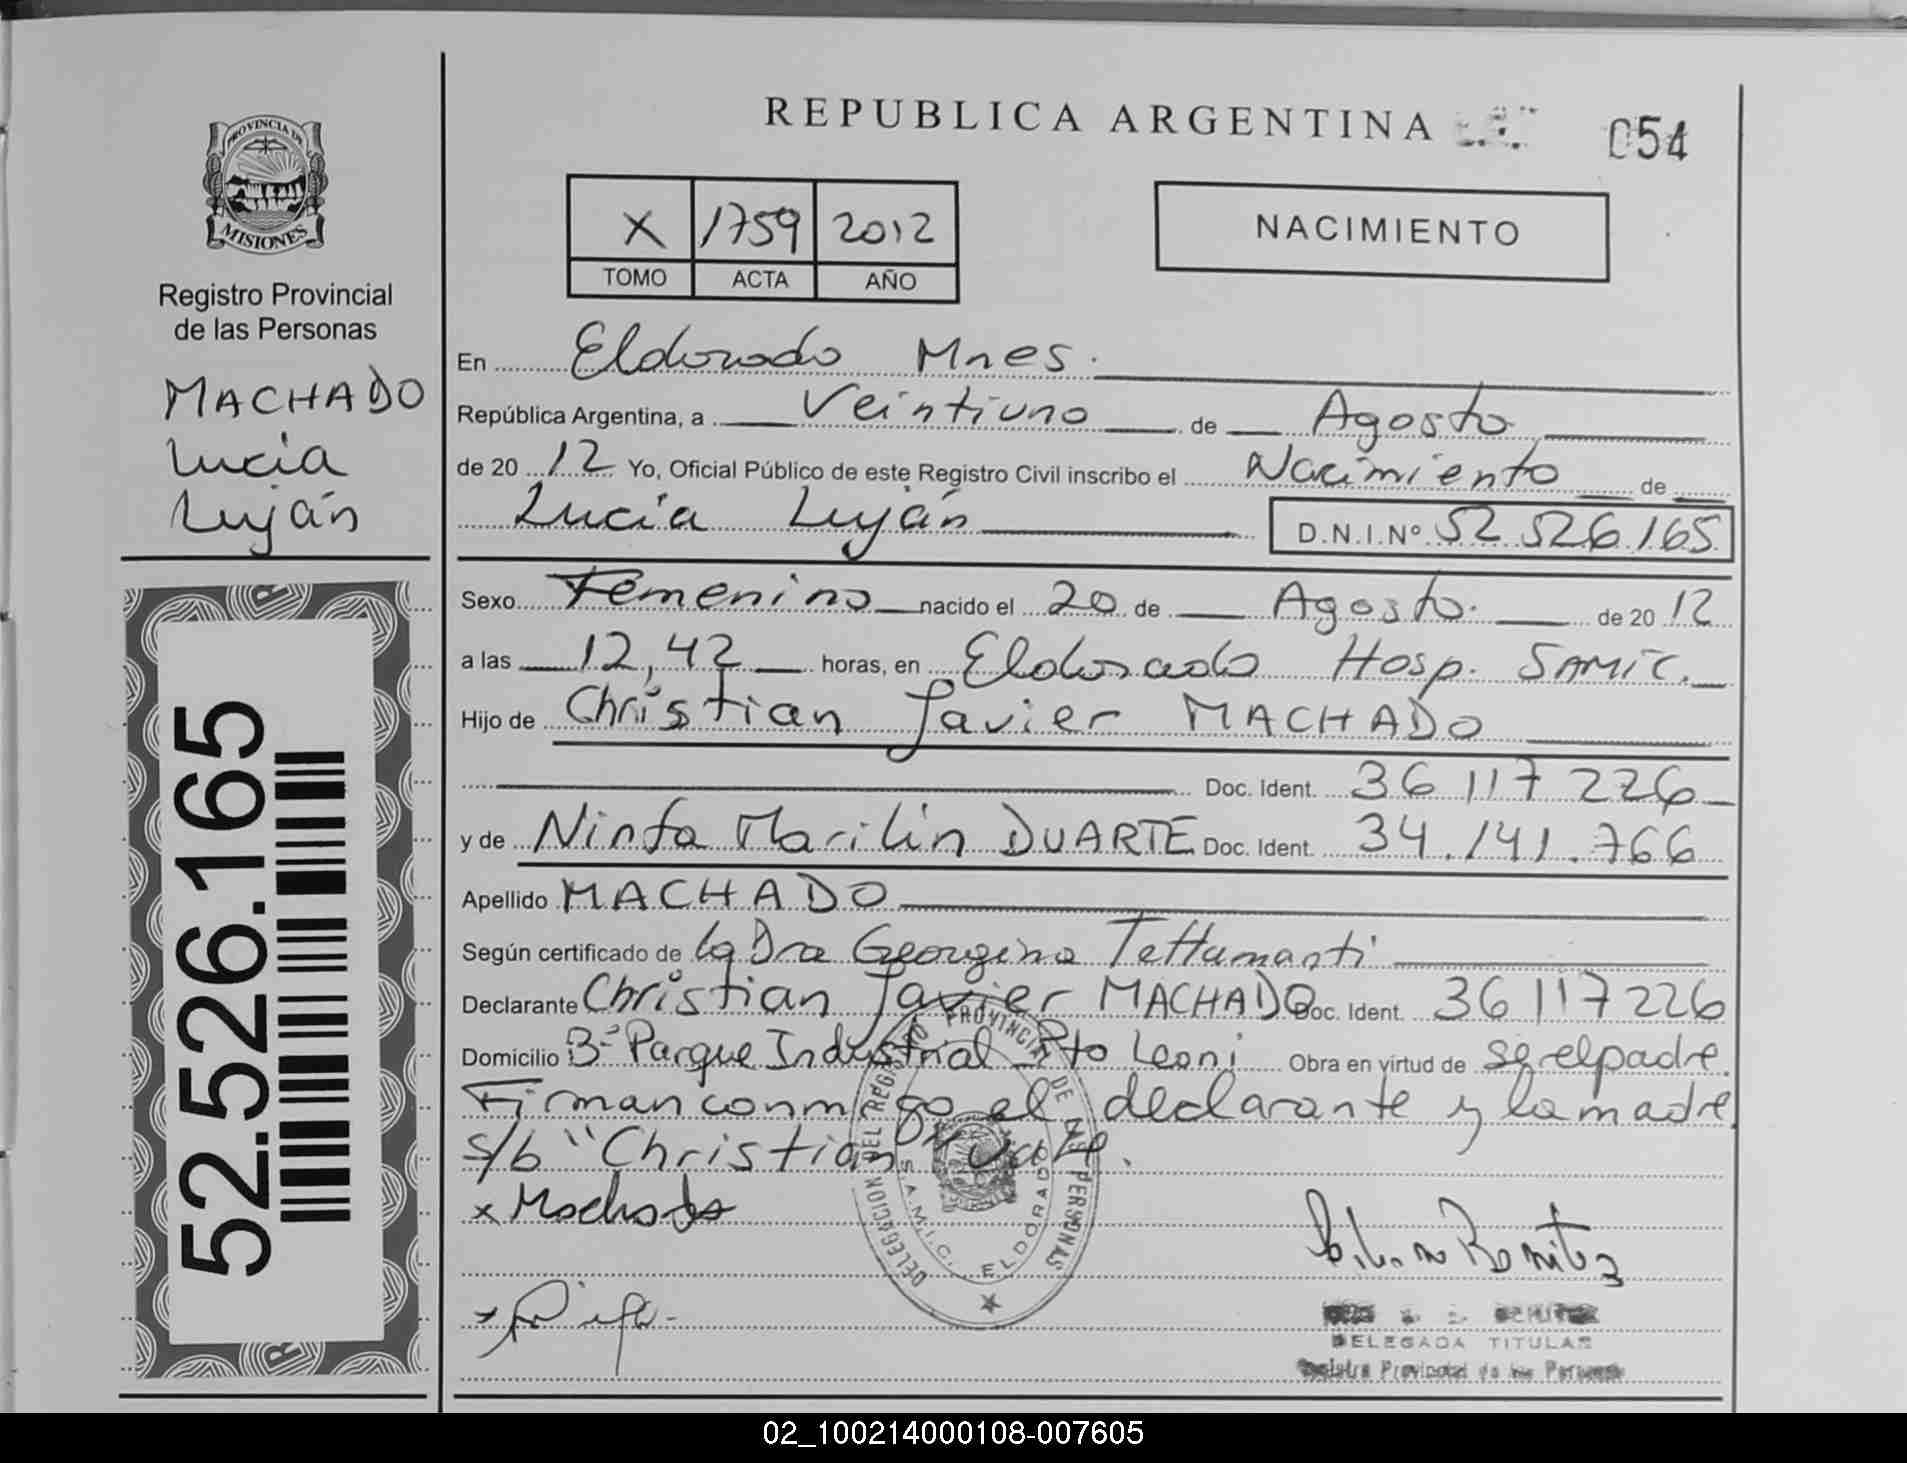 REPUBLICA ARGENTINA
054
PROVINCIA DE
MISIONES
Registro Provincial
de las Personas
MACHADO
Lucía
Luján
52.526.165
X 1759 2012
TOMO ACTA AÑO
NACIMIENTO
En Eldorado Mnes.
República Argentina, a Veintiuno de Agosto
de 20 12 Yo, Oficial Público de este Registro Civil inscribo el Nacimiento de
Lucía Luján D.N.I.Nº 52 526 165
Sexo Femenino nacido el 20 de Agosto de 20 12
a las 12,42 horas, en Eldorado Hosp. SAMIC.
Hijo de Christian Javier MACHADO
Doc. Ident. 36 117 226
y de Ninfa Marilin DUARTE Doc. Ident. 34.141.766
Apellido MACHADO
Según certificado de la Dra Georgina Tettamanti
Declarante Christian Javier MACHADO Doc. Ident. 36 117 226
Domicilio Bº Parque Industrial Pto Leoni Obra en virtud de ser el padre.
Firman conmigo el declarante y la madre
s/b "Christian" Vale.
x Machado
DELEGACION DEL REGISTRO PROVINCIAL DE LAS PERSONAS
S.A.M.I.C. ELDORADO
Benitez
DELEGADA TITULAR
Registro Provincial de las Personas
02_100214000108-007605